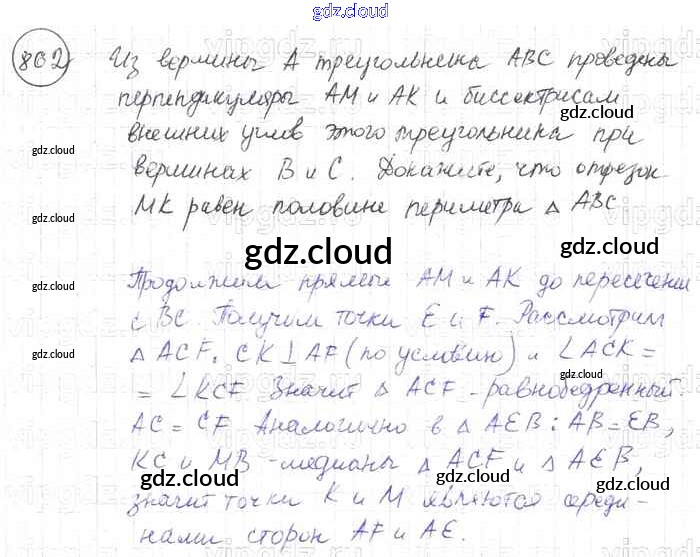 gdz.cloud
802
Из вершины А треугольника ABC проведены
перпендикуляры AM и AK к биссектрисам
внешних углов этого треугольника при
вершинах B и C. Докажите, что отрезок
MK равен половине периметра △ ABC
gdz.cloud
Продолжим прямые AM и AK до пересечения
с BC. Получим точки E и F. Рассмотрим
△ ACF, CK ⊥ AF (по условию) и ∠ACK =
= ∠KCF. Значит △ ACF - равнобедренный.
AC = CF. Аналогично в △ AEB: AB = EB,
KC и MB - медианы △ ACF и △ AEB,
значит точки K и M являются середи-
нами сторон AF и AE.